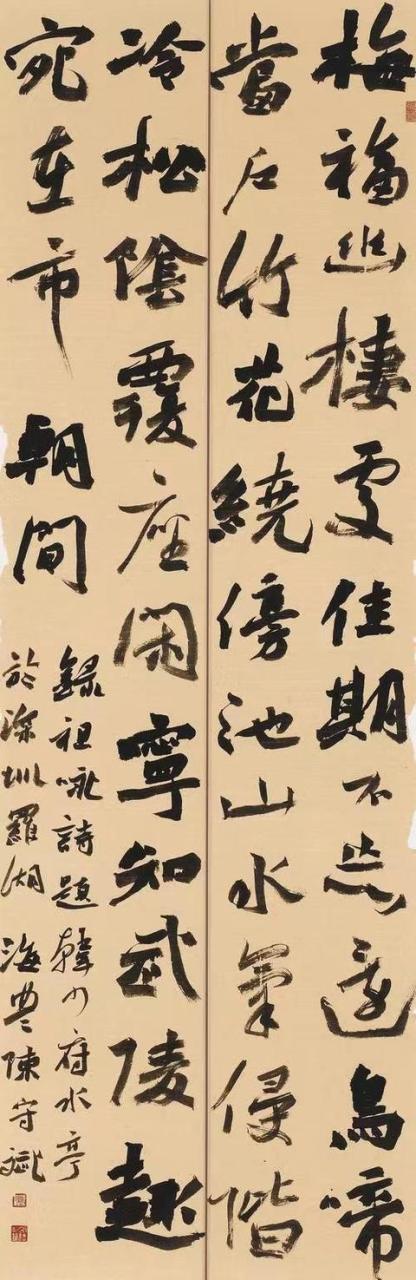 梅福幽棲處佳期不忘還鳥啼
當戶竹花繞傍池山水氣侵階
冷松陰覆座閑寧知武陵趣
宛在市朝間
錄祖咏詩題韓少府水亭
於深圳羅湖海豐陳守斌